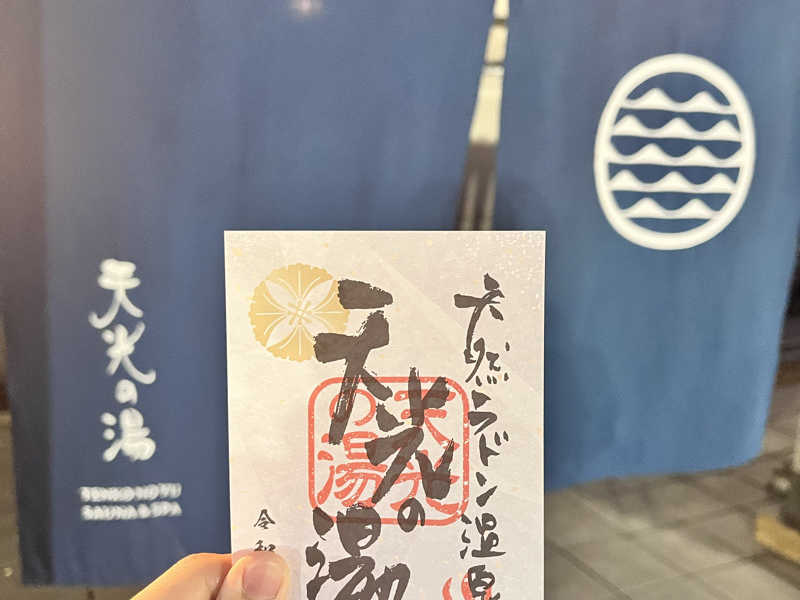 天光の湯
TENKO NO YU
SAUNA & SPA
天然ラドン温泉
天光の湯
天光の湯
令和